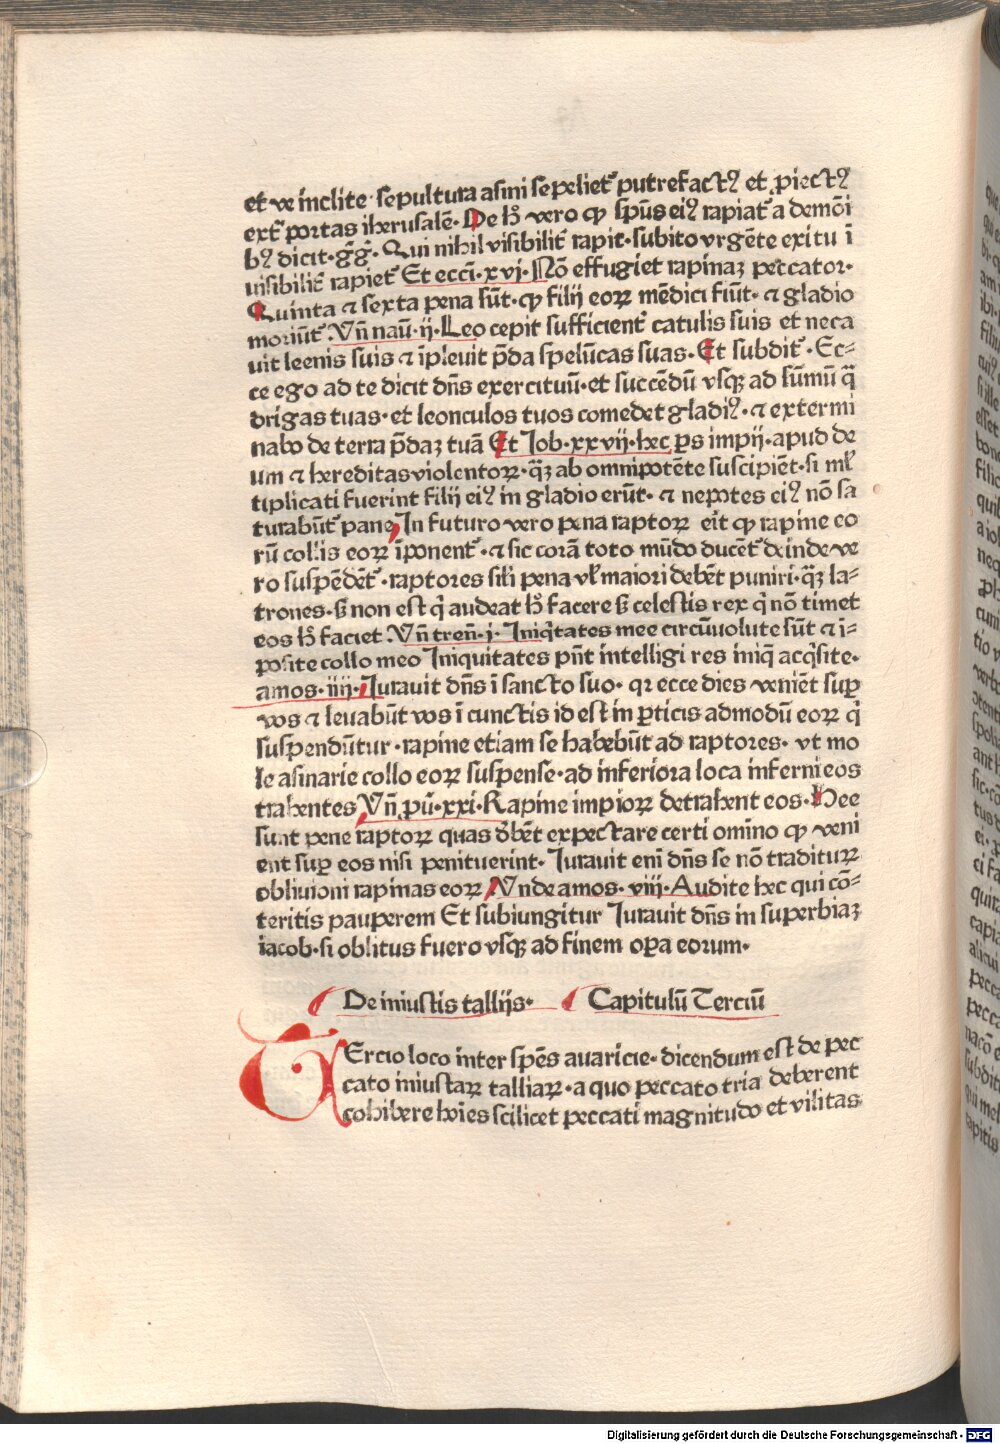 et ve inclite· sepultura asini sepeliet᷑ putrefactꝰ et ꝓiectꝰ
ext᷑ portas iherusalē· De hͦ vero ꝙ spūs eiꝰ rapiat᷑ a demōi
bꝰ dicit·gᷓgᷓ· Qui nihil visibilit᷑ rapit·subito vrgēte exitu ī
uisibilit᷑ rapiet᷑ Et ecci·xvj· Nō effugiet rapinaꝫ peccator·
Quinta ⁊ sexta pena sūt·ꝙ filij eoꝝ mēdici fiūt· ⁊ gladio
moriūt᷑ Vn̄ naū·ij·Leo cepit sufficient᷑ catulis suis et neca
uit leenis suis ⁊ īpleuit p̄da spelūcas suas· Et subdit᷑ · Ec⸗
ce ego ad te dicit dn̄s exercituū·et succēdū vsqꝫ ad sūmū q̄
drigas tuas·et leonculos tuos comedet gladiꝰ· ⁊ extermi
nabo de terra p̄daꝫ tuā Et Iob·xxvij·hec ꝑs impij·apud de
um ⁊ hereditas violentoꝝ·q̄ꝫ ab omnipotēte suscipiēt·si ml̓
tiplicati fuerint filij eiꝰ in gladio erūt· ⁊ nepotes eiꝰ nō sa
turabūt᷑ pane In futuro vero pena raptoꝝ eit ꝙ rapine eo
rū collis eoꝝ īponent᷑ ·⁊ sic corā toto mūdo ducēt᷑ deinde ve
ro suspēdēt᷑ ·raptores sili pena vl̓ maiori debēt puniri·q̄ꝫ la⸗
trones·sꝫ non est q̇ audeat hͦ facere sꝫ celestis rex q̇ nō timet
eos hͦ faciet Vn̄ tren̄·j· Iniq̇tates mee circūuolute sūt ⁊ ī⸗
posite collo meo Iniquitates pn̄t intelligi res iniq̄ acq̇site·
amos·iiij·Iurauit dn̄s ī sancto suo· qr ecce dies veniēt suꝑ
vos ⁊ leuabūt vos ī cunctis id est in ꝑticis admodū eoꝝ q̇
suspendūtur·rapine etiam se habebūt ad raptores· vt mo
le asinarie collo eoꝝ suspense·ad inferiora loca inferni eos
trahentes Vn̄ ꝓu᷑·xxi·Rapine impioꝝ detrahent eos· Hee
sunt pene raptoꝝ quas dēbēt expectare certi omīno ꝙ veni
ent suꝑ eos nisi penituerint· Iurauit eni dn̄s se nō tradituꝝ
obliuioni rapinas eoꝝ Vnde amos· viij·Audite hec qui cō⸗
teritis pauperem Et subiungitur Iurauit dn̄s in superbiaꝫ
iacob·si oblitus fuero vsqꝫ ad finem oꝑa eorum·
De iniustis tallijs· Capitulū Terciū
TErcio loco inter spēs auaricie· dicendum est de pec
cato iniustaꝝ talliaꝝ·a quo peccato tria deberent
cohibere hoīes scilicet peccati magnitudo et vilitas
Digitalisierung gefördert durch die Deutsche Forschungsgemeinschaft - DFG